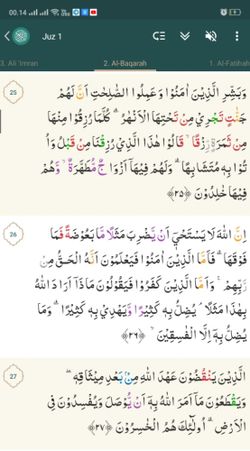 00.14
Juz 1
3. Ali 'Imran
2. Al-Baqarah
1. Al-Fatihah
25
وَبَشِّرِ الَّذِيْنَ اٰمَنُوْا وَعَمِلُوا الصّٰلِحٰتِ اَنَّ لَهُمْ
جَنّٰتٍ تَجْرِيْ مِنْ تَحْتِهَا الْاَنْهٰرُ ۗ كُلَّمَا رُزِقُوْا مِنْهَا
مِنْ ثَمَرَةٍ رِّزْقًا ۙ قَالُوْا هٰذَا الَّذِيْ رُزِقْنَا مِنْ قَبْلُ وَاُ
تُوْا بِهٖ مُتَشَابِهًا ۗ وَلَهُمْ فِيْهَآ اَزْوَا جٌ مُّطَهَّرَةٌ ۙ وَّهُمْ
فِيْهَا خٰلِدُوْنَ ﴿٢٥﴾
26
اِنَّ اللّٰهَ لَا يَسْتَحْيٖۤ اَنْ يَّضْرِبَ مَثَلًا مَّا بَعُوْضَةً فَمَا
فَوْقَهَا ۗ فَاَمَّا الَّذِيْنَ اٰمَنُوْا فَيَعْلَمُوْنَ اَنَّهُ الْحَقُّ مِنْ
رَّبِّهِمْ ۚ وَاَ مَّا الَّذِيْنَ كَفَرُوْا فَيَقُوْلُوْنَ مَاذَاۤ اَرَا دَ اللّٰهُ
بِهٰذَا مَثَلًا ۘ يُضِلُّ بِهٖ كَثِيْرًا وَّيَهْدِيْ بِهٖ كَثِيْرًا ۗ وَمَا
يُضِلُّ بِهٖۤ اِلَّا الْفٰسِقِيْنَ ۙ ﴿٢٦﴾
27
الَّذِيْنَ يَنْقُضُوْنَ عَهْدَ اللّٰهِ مِنْۢ بَعْدِ مِيْثَاقِهٖ ۖ
وَيَقْطَعُوْنَ مَاۤ اَمَرَ اللّٰهُ بِهٖۤ اَنْ يُّوْصَلَ وَيُفْسِدُوْنَ فِى
الْاَرْضِ ۗ اُولٰٓئِكَ هُمُ الْخٰسِرُوْنَ ﴿٢٧﴾